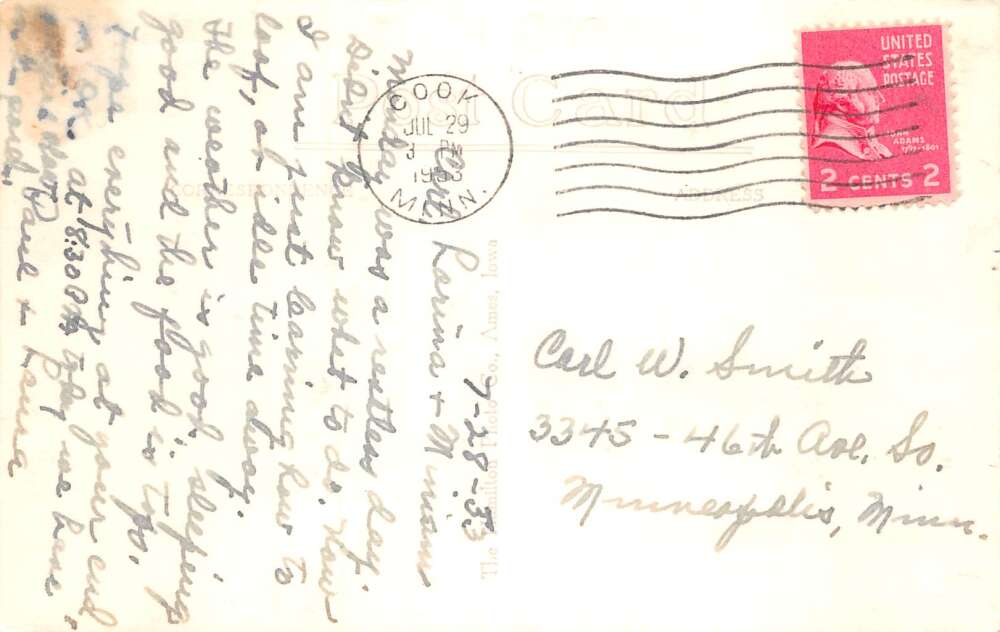 Post Card
CORRESPONDENCE
ADDRESS
COOK
JUL 29
3 PM
1953
MINN.
UNITED
STATES
POSTAGE
JOHN
ADAMS
2 CENTS 2
The Hamilton Photo Co., Ames, Iowa
7-28-53
Carl, Larina + Miriam
Monday was a restless day.
Didnt know what to do. Now
I am just learning how to
loaf, an idle time away.
The weather is good sleeping
good and the food is tops.
Hope everything at your end
is at 8:30 PM today we have
Paul + Laura
Carl W. Smith
3345-46th Ave. So.
Minneapolis, Minn.